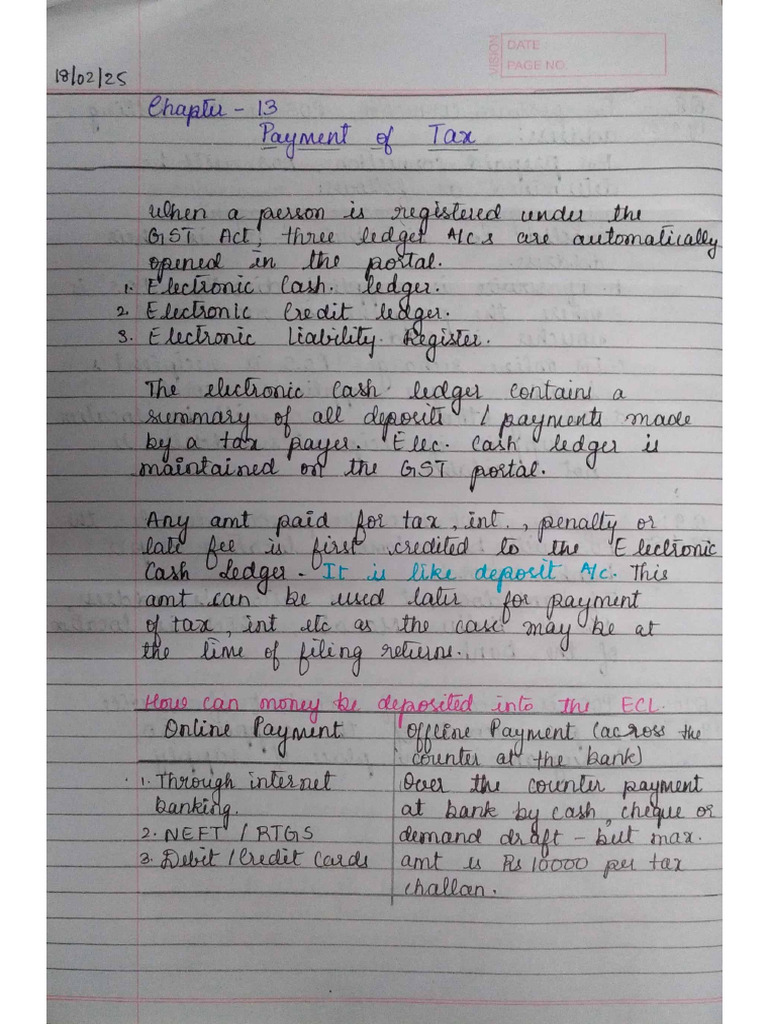 VISION
DATE
PAGE NO.
18/02/25
Chapter - 13
Payment of Tax
When a person is registered under the
GST Act, three ledger A/Cs are automatically
opened in the portal.
1. Electronic Cash. ledger.
2. Electronic Credit ledger.
3. Electronic Liability Register.
The electronic cash ledger contains a
summary of all deposits / payments made
by a tax payer. Elec. cash ledger is
maintained on the GST portal.
Any amt paid for tax, int., penalty or
late fee is first credited to the Electronic
Cash Ledger. It is like deposit A/c. This
amt can be used later for payment
of tax, int etc as the case may be at
the time of filing returns.
How can money be deposited into the ECL.
Online Payment
1. Through internet
banking.
2. NEFT / RTGS
3. Debit / Credit Cards
Offline Payment (across the
counter at the bank)
Over the counter payment
at bank by cash, cheque or
demand draft - but max.
amt is Rs 10000 per tax
challan.